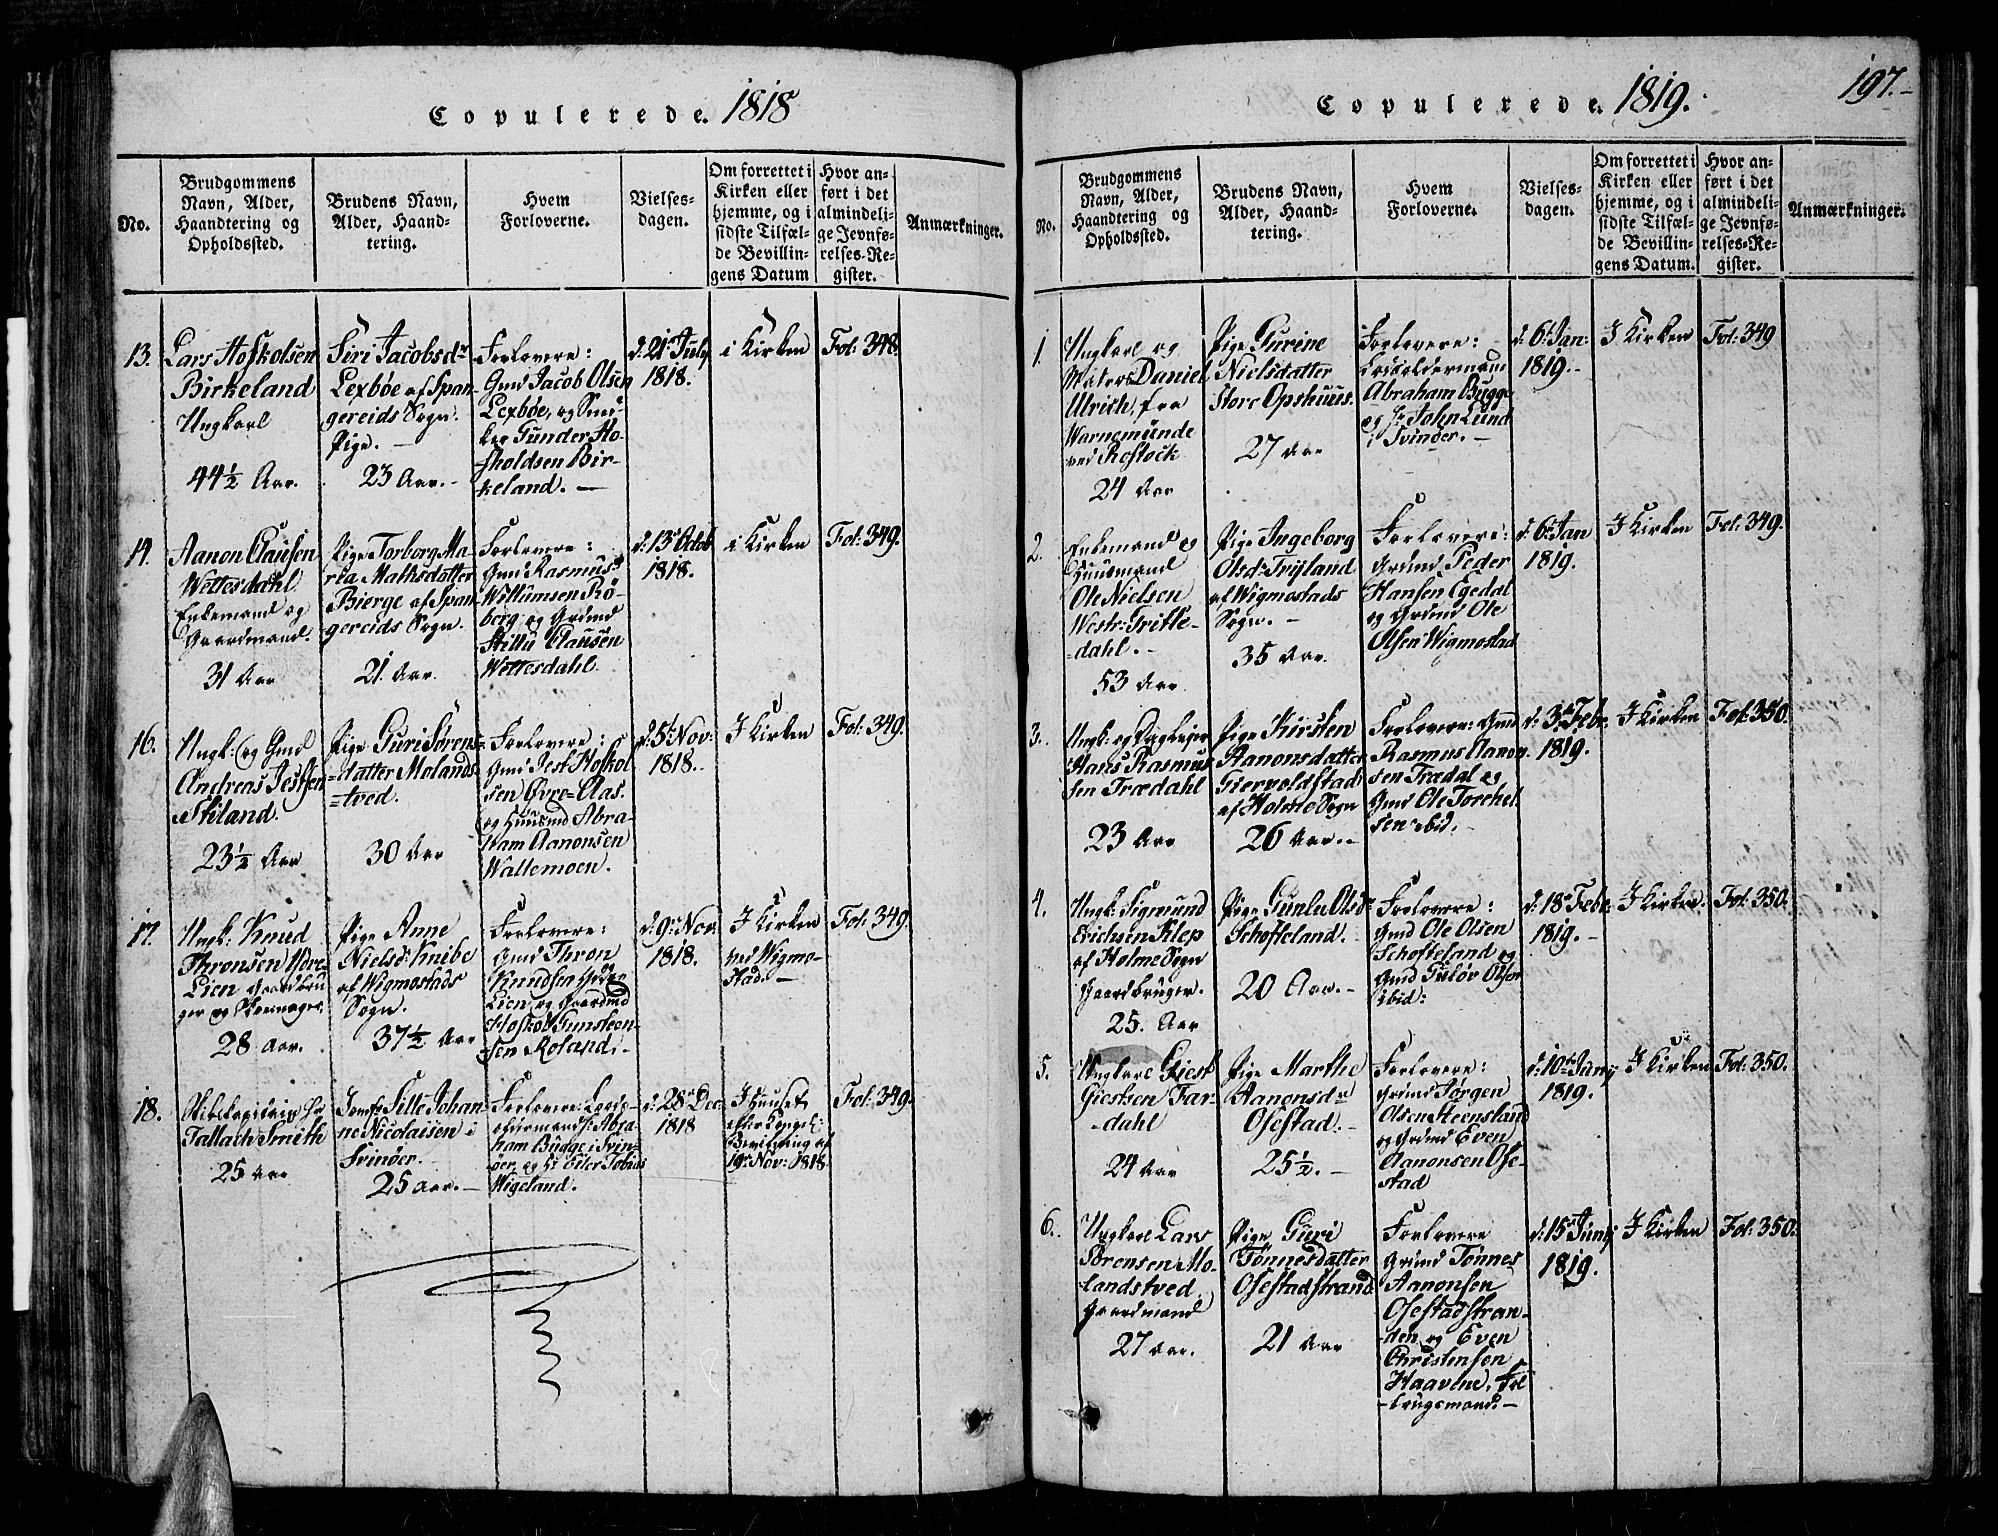 Copulerede. 1818
No.
Brudgommens
Navn, Alder,
Haandtering og
Opholdssted.
Brudens Navn,
Alder, Haand-
tering.
Hvem
Forloverne.
Vielses-
dagen.
Om forrettet i
Kirken eller
hjemme, og i
sidste Tilfæl-
de Bevillin-
gens Datum
Hvor an-
ført i det
almindeli-
ge Jevnfø-
relses-Re-
gister.
Anmærkninger.
13.
Lars Hofkolsen
Birkeland
Ungkarl
44½ Aar.
Siri Jacobsdr
Lexbøe af Span-
gereids Sogn.
Pige.
23 Aar.
Forlovere:
Gmd Jacob Olsen
Lexbøe, og
Gunder Ho-
skoldsen Bir-
keland.
d: 21 July
1818.
i Kirken
Fol: 348.
14.
Aanon Clausen
Wettesdahl
Enkemand og
Gaardmand.
31 Aar
Pige Torborg Ma-
ria Mathisdatter
Bierge af Span-
gereids Sogn.
21. Aar.
Forlovere:
Gmd Rasmus
Willumsen Rö-
berg og Grdmd
Stillu Clausen
Wettesdahl.
d: 13 Octob
1818.
i Kirken
Fol: 349.
16.
Ungk: og Gmd
Andreas Jessen
Stiland.
23½ Aar
Pige Guri Sørens-
datter Molands-
tved.
30 Aar
Forlovere:
Gmd Jest Hoskol
sen Øvre-Aas.
og Huusmd Abra-
ham Aanonsen
Waltemoen.
d: 5 Nov:
1818.
I Kirken
Fol: 349.
17.
Ungk: Knud
Thronsen Ydre
Lien Gaardbru
ger og
28 Aar.
Pige Anne
Nielsd: Knibe
af Wigmostads
Sogn.
37½ Aar
Forlovere:
Gmd Thron
Knudsen Ydre
Lien og Gaardmd
Hoskol Gunsteen-
sen Roland.
d: 9 Nov.
1818.
I Kirken
ved Wigmo-
stad.
Fol: 349.
18.
Tallach Smith
25 Aar
Jomfr Sille Johan-
ne Nicolaisen i
Svinöer.
25 Aar.
Forlovere:
Abra-
ham Bugge i Svin-
öer, og Hr Eiler Tobias
Wigeland.
d: 28 Dec
1818
I Huuset
efter Kongel:
Bevilling af
19 Nov: 1818.
Fol: 349.
Copulerede. 1819.
197.
No.
Brudgommens
Navn, Alder,
Haandtering og
Opholdssted.
Brudens Navn,
Alder, Haand-
tering.
Hvem
Forloverne.
Vielses-
dagen.
Om forrettet i
Kirken eller
hjemme, og i
sidste Tilfæl-
de Bevillin-
gens Datum.
Hvor an-
ført i det
almindeli-
ge Jevnfø-
relses-Re-
gister.
Anmærkninger.
1.
Ungkarl og
Matros Daniel
Ulrich, fra
Warnemünde
ved Rostock
24 Aar
Pige Gurine
Nielsdatter
Store Opshuus.
27 Aar
Forlovere:
Abraham Bugge
og Hr John Lund
i Svinöer.
d: 6 Jan:
1819.
I Kirken
Fol: 349
2.
Enkemand og
Huusmand
Ole Nielsen
Westr: Trille-
dahl.
53 Aar
Pige Ingeborg
Olsdr Tryland
af Wigmostads
Sogn.
35 Aar.
Forlovere:
Grdmd Peder
Hansen Egedal
og Grdmd Ole
Olsen Wigmostad
d: 6 Jan
1819.
I Kirken
Fol: 349.
3.
Ungk: og
Hans Rasmus
sen Trædahl
23 Aar
Pige Kirsten
Aanonsdatter
Giervoldstad
af Holme Sogn
26 Aar.
Forlovere: Gmd
Rasmus Aanon
sen Trædal og
Gmd Ole Torchel
sen ibid.
d: 3 Febr.
1819.
I Kirken
Fol: 350.
4.
Ungk: Sigmund
Erichsen Klep
af Holme Sogn
Gaardbruger.
25. Aar
Pige Gunlu Olsdr
Schofteland.
20 Aar.
Forlovere:
Gmd Ole Olsen
Schofteland og
Gmd Guløv Olsen
ibid:
d: 18 Febr
1819.
I Kirken.
Fol: 350.
5.
Ungkarl Giest
Giestsen Far-
dahl
24 Aar
Pige Marthe
Aanonsdr
Osestad.
25½.
Forlovere:
Grdmd Jørgen
Olsen Steensland
og Grdmd Even
Aanonsen Ose-
stad
d: 10 Juny
1819.
I Kirken
Fol: 350.
6.
Ungkarl Lars
Sörensen Mo-
landstved.
Gaardmand
27 Aar.
Pige Guri
Tönnesdatter
Osestadstrand
21 Aar
Forlovere
Grdmd Tönnes
Aanonsen
Osestadstran-
den og Even
Christensen
Haavene,
d: 15 Juny
1819.
I Kirken
Fol: 350.